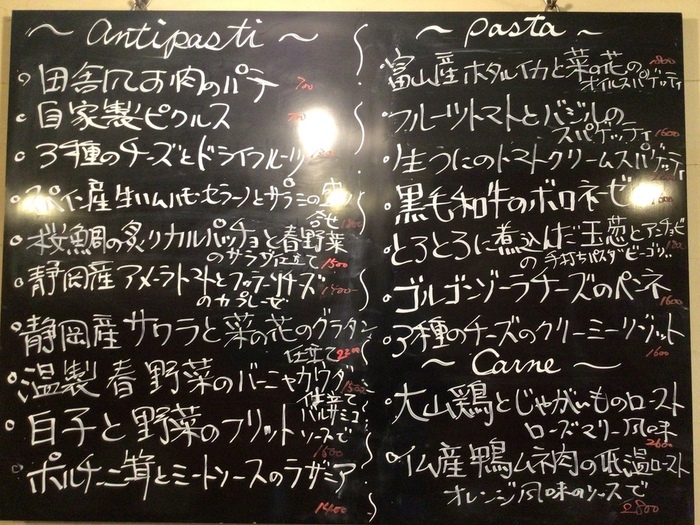 ~ Antipasti ~
田舎風お肉のパテ 700
自家製ピクルス
3種のチーズとドライフルーツ
スペイン産生ハムハモン・セラーノとサラミの
合せ
桜鯛の炙りカルパッチョと春野菜
のサラダ仕立て 1500
静岡産アメーラトマトとブッラータチーズ
のカプレーゼ 1400
静岡産サワラと菜の花のグラタン
仕立て
温製春野菜のバーニャカウダ
白子と野菜のフリット 仕立て バルサミコ
ソースで
1600
ポルチーニ茸とミートソースのラザニア
1400
~ pasta ~
富山産ホタルイカと菜の花の
オイルスパゲッティ
フルーツトマトとバジルの
スパゲッティ 1600
生うにのトマトクリームスパゲッティ
黒毛和牛のボロネーゼ
とろとろに煮込んだ玉葱とアンチョビ
の手打ちパスタビーゴリ..
ゴルゴンゾーラチーズのペンネ
1600
3種のチーズのクリーミーリゾット
1600
~ Carne ~
大山鶏とじゃがいものロースト
ローズマリー風味
2600
仏産鴨ムネ肉の低温ロースト
オレンジ風味のソースで
2800